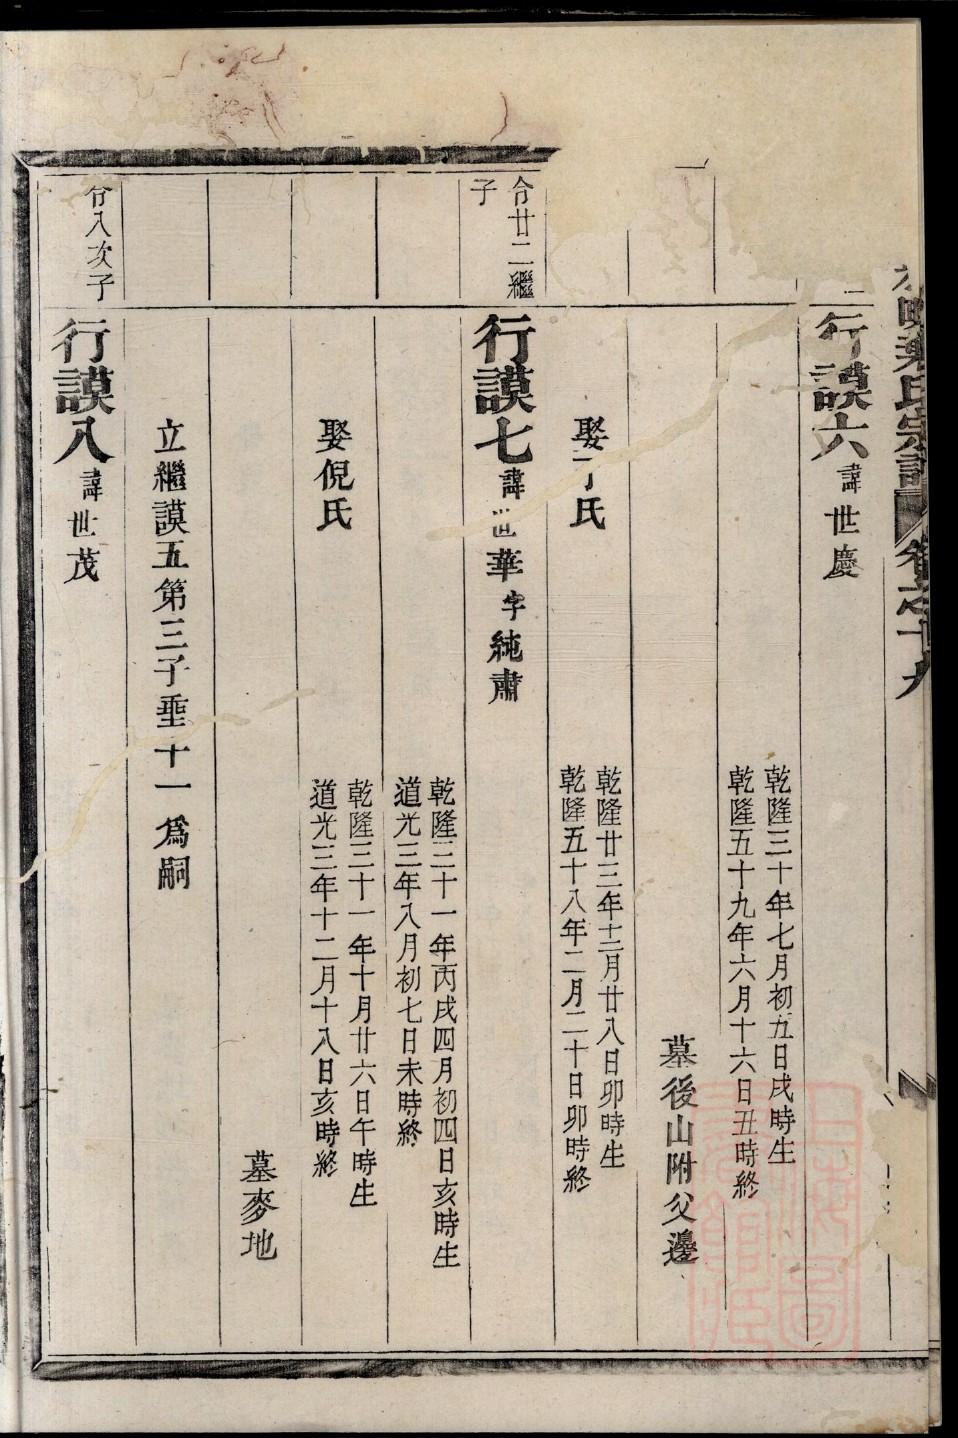 葉氏宗譜 卷之十九
行謨六 諱世慶
乾隆三十年七月初五日戌時生
乾隆五十九年六月十六日丑時終
墓後山附父邊
娶丁氏
乾隆廿三年十二月廿八日卯時生
乾隆五十八年二月二十日卯時終
令廿二繼子
行謨七 諱世華字純肅
乾隆三十一年丙戌四月初四日亥時生
道光三年八月初七日未時終
娶倪氏
乾隆三十一年十月廿六日午時生
道光三年十二月十八日亥時終
墓麥地
立繼謨五第三子垂十一為嗣
令八次子
行謨八 諱世茂